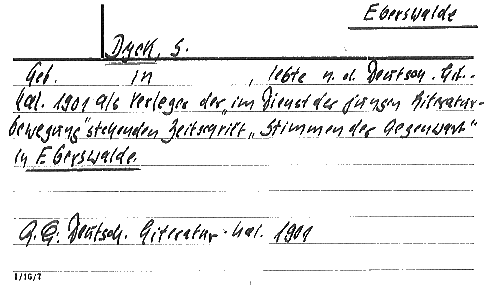 Eberswalde
Dyck, S.
Geb. in , lebte n. d. Deutsch. Lit.-
Kal. 1901 als Verleger der „im Dienst der jungen Literatur-
bewegung" stehenden Zeitschrift „Stimmen der Gegenwart"
in Eberswalde.
A. G: Deutsch. Literatur-Kal. 1901
1/16/7